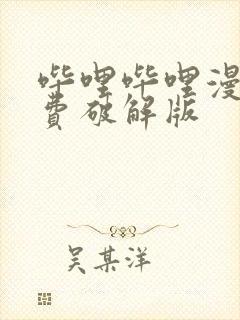 哔哩哔哩漫
费破解版
吴某洋